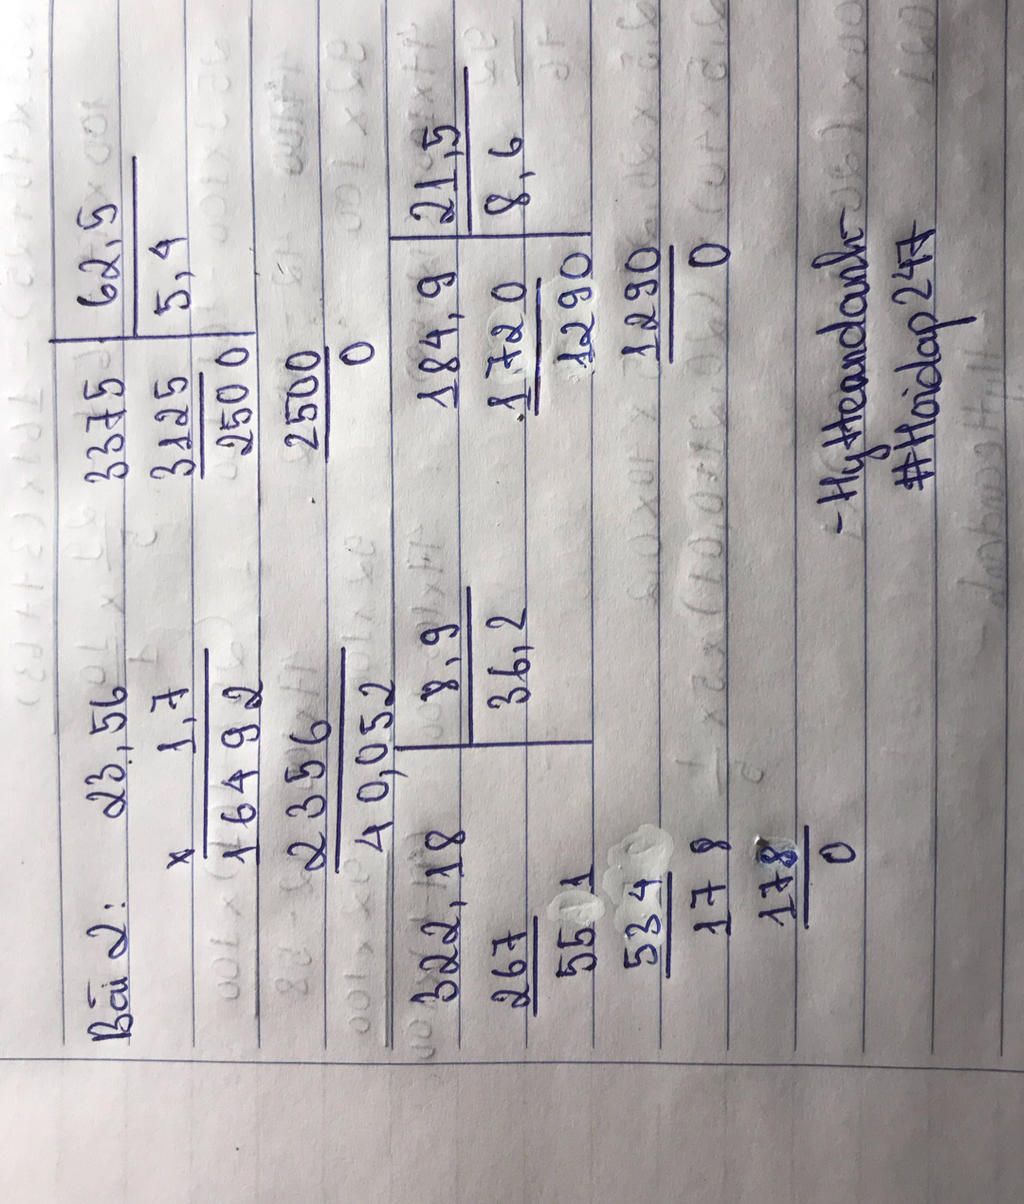 Bài 2: 23,56 3375 62,5
x 1,7 3125 5,4
16492 2500
2356 2500
40,052 0
322,18 8,9 184,9 21,5
267 36,2 1720 8,6
55 1 1290
534 1290
178 0
178
0
-HyHeandanh-
#Hoidap247